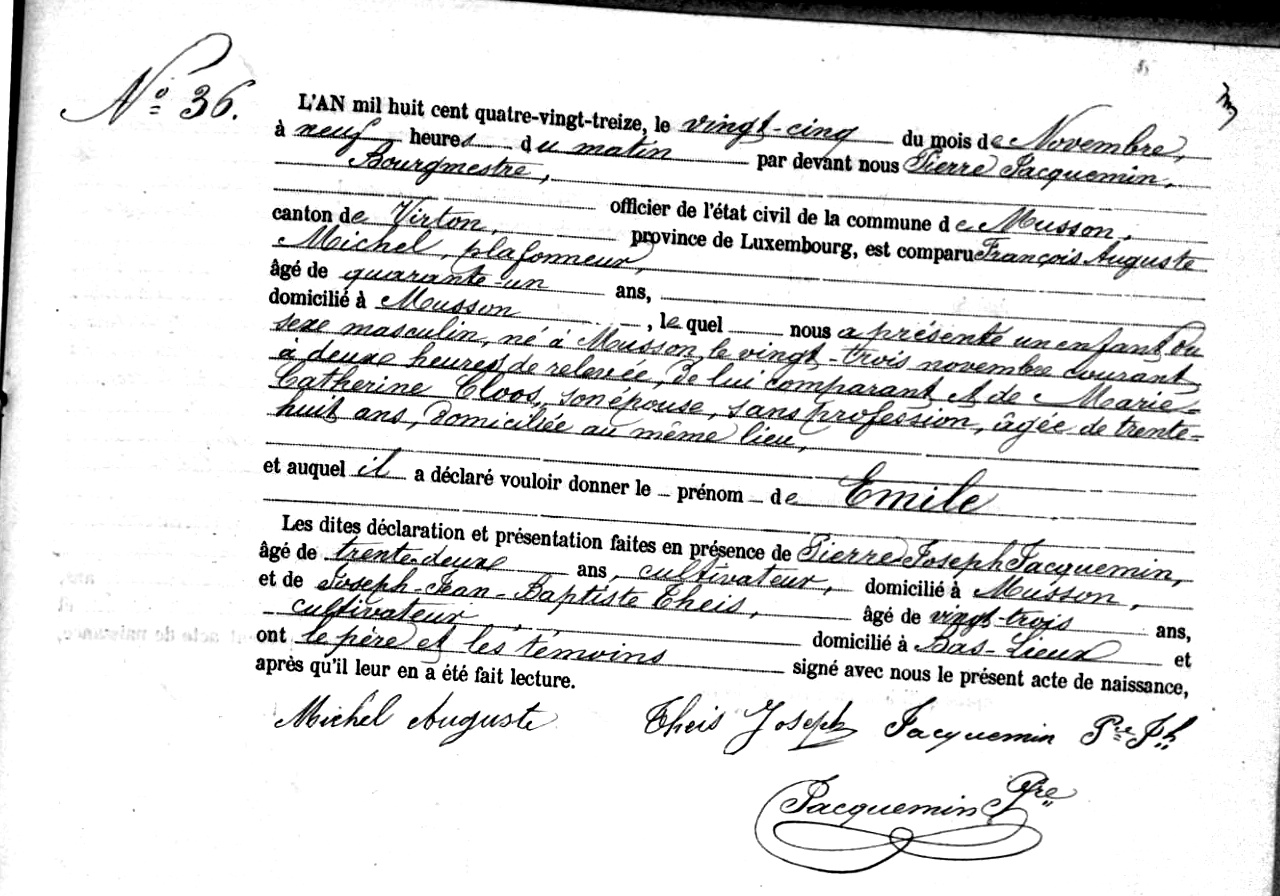 N° 36.
L'AN mil huit cent quatre-vingt-treize, le vingt-cinq du mois de Novembre,
à neuf heures du matin par devant nous Pierre Jacquemin,
Bourgmestre,
officier de l'état civil de la commune de Musson,
canton de Virton, province de Luxembourg, est comparu François Auguste
Michel, plafonneur,
âgé de quarante-un ans,
domicilié à Musson, lequel nous a présenté un enfant du
sexe masculin, né à Musson, le vingt-trois novembre courant
à deux heures de relevée, de lui comparant et de Marie-
Catherine Cloos, son épouse, sans profession, âgée de trente-
huit ans, domiciliée au même lieu,
et auquel il a déclaré vouloir donner le prénom de Emile
Les dites déclaration et présentation faites en présence de Pierre Joseph Jacquemin,
âgé de trente-deux ans, cultivateur, domicilié à Musson,
et de Joseph-Jean-Baptiste Theis, âgé de vingt-trois ans,
cultivateur, domicilié à Bas-Lieux et
ont le père et les témoins signé avec nous le présent acte de naissance,
après qu'il leur en a été fait lecture.
Michel Auguste Theis Joseph Jacquemin Pre Jh
Jacquemin Pre